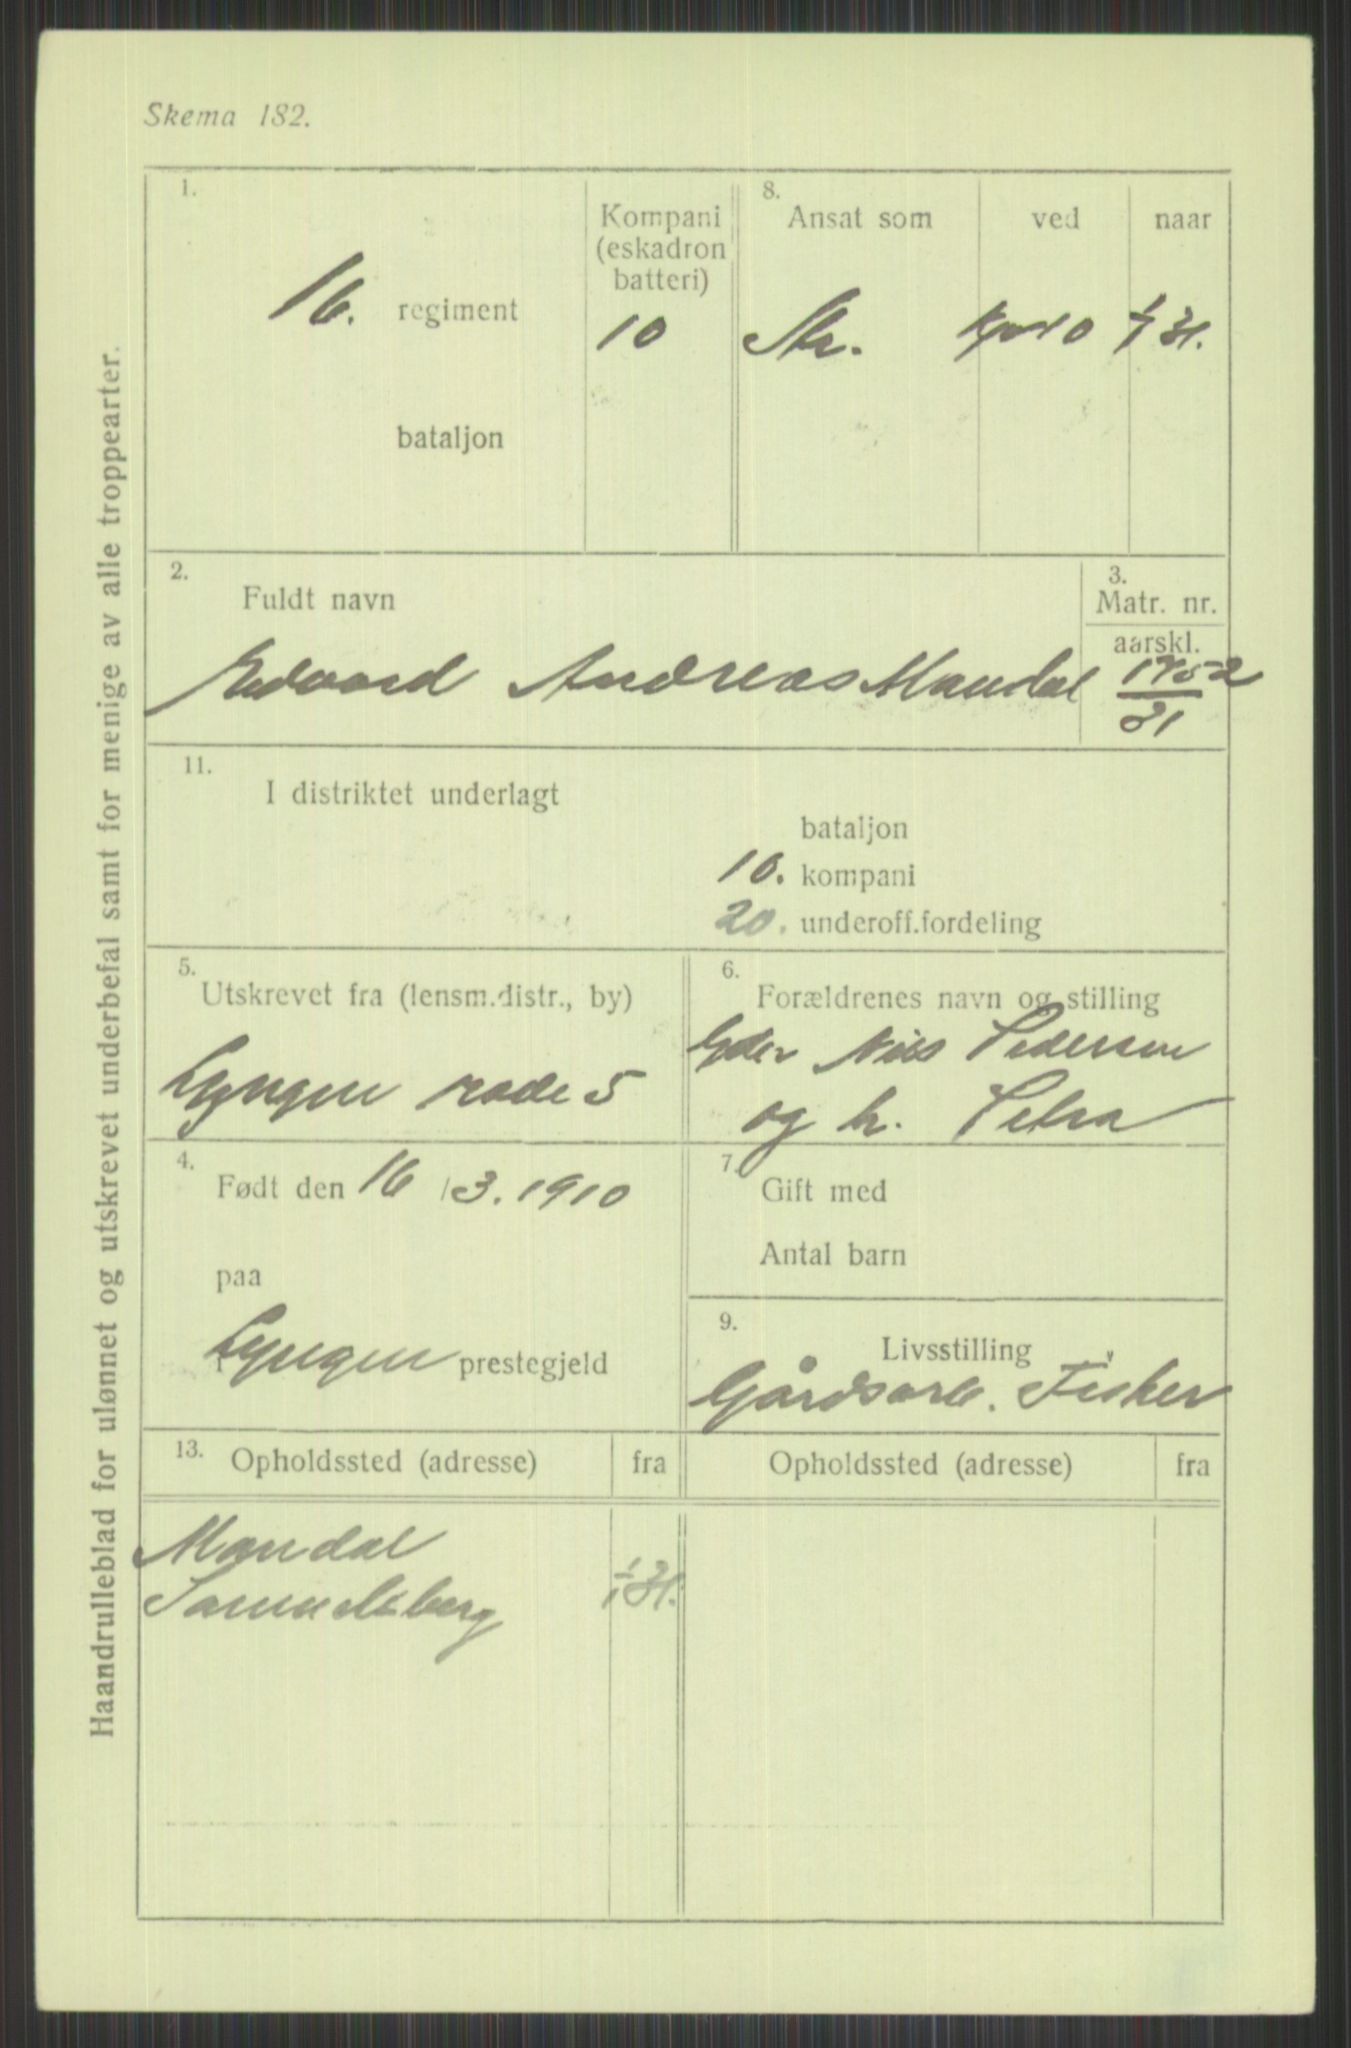 Skema 182.
Haandrulleblad for ulønnet og utskrevet underbefal samt for menige av alle troppearter.
1.
16. regiment
bataljon
Kompani
(eskadron
batteri)
10
8.
Ansat som
ved
naar
Str.
10
1/1 31.
2.
Fuldt navn
Edvard Andreas Mandal
3.
Matr. nr.
aarskl.
1452
31
11.
I distriktet underlagt
bataljon
10. kompani
20. underoff.fordeling
5.
Utskrevet fra (lensm.distr., by)
Lyngen rode 5
6.
Forældrenes navn og stilling
Gbr. Nils Pedersen
og h. Petra
4.
Født den 16/3. 1910
paa
i Lyngen prestegjeld
7.
Gift med
Antal barn
9.
Livsstilling
Gårdsarb. Fisker
13. Opholdssted (adresse)
fra
Opholdssted (adresse)
fra
Mandal
Samuelsberg
1/1 31.